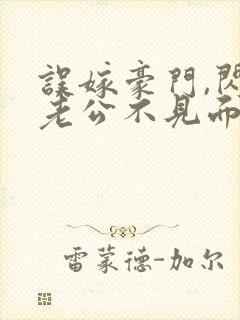 誤嫁豪門,閃
老公不見面
雷蒙德-加尔